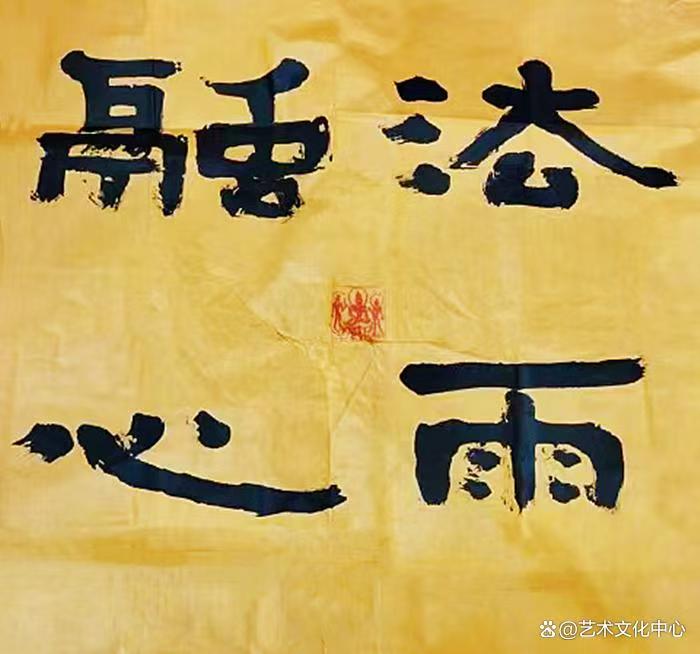 法雨
融心
@艺术文化中心